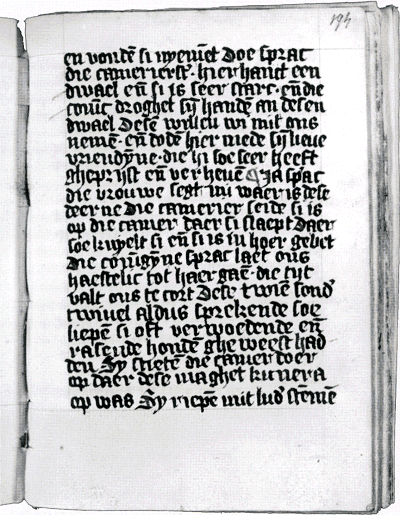 en vondē si nyemēt Doe sprac
die camerierst'. hier hanct een
dwael eñ si is seer starc. en die
coninc droghet sijn handē an desen
dwael Desē willen wi mit ons
nemē. eñ dodē hier mede sijn lieue
vriendȳne. die hi soe seer heeft
gheprijst eñ ver heuē ¶ Ja sprac
die vrouwe segt mi waer is dese
deerne Die camerier seide si is
op die camer daer si slaept Daer
soe knyelt si eñ si is in hoer gebet
Die conigȳne sprac laet ons
haestelic tot haer gaē. die tijt
valt ons te cort Dese twiē sond'
twiuel aldus sprekende soe
liepen si oft verwoedende eñ
rasende hondē ghe weest had
den Sy stietē die camer doer
op daer dese maghet kunera
op was Sy riepē mit lud' stēmē